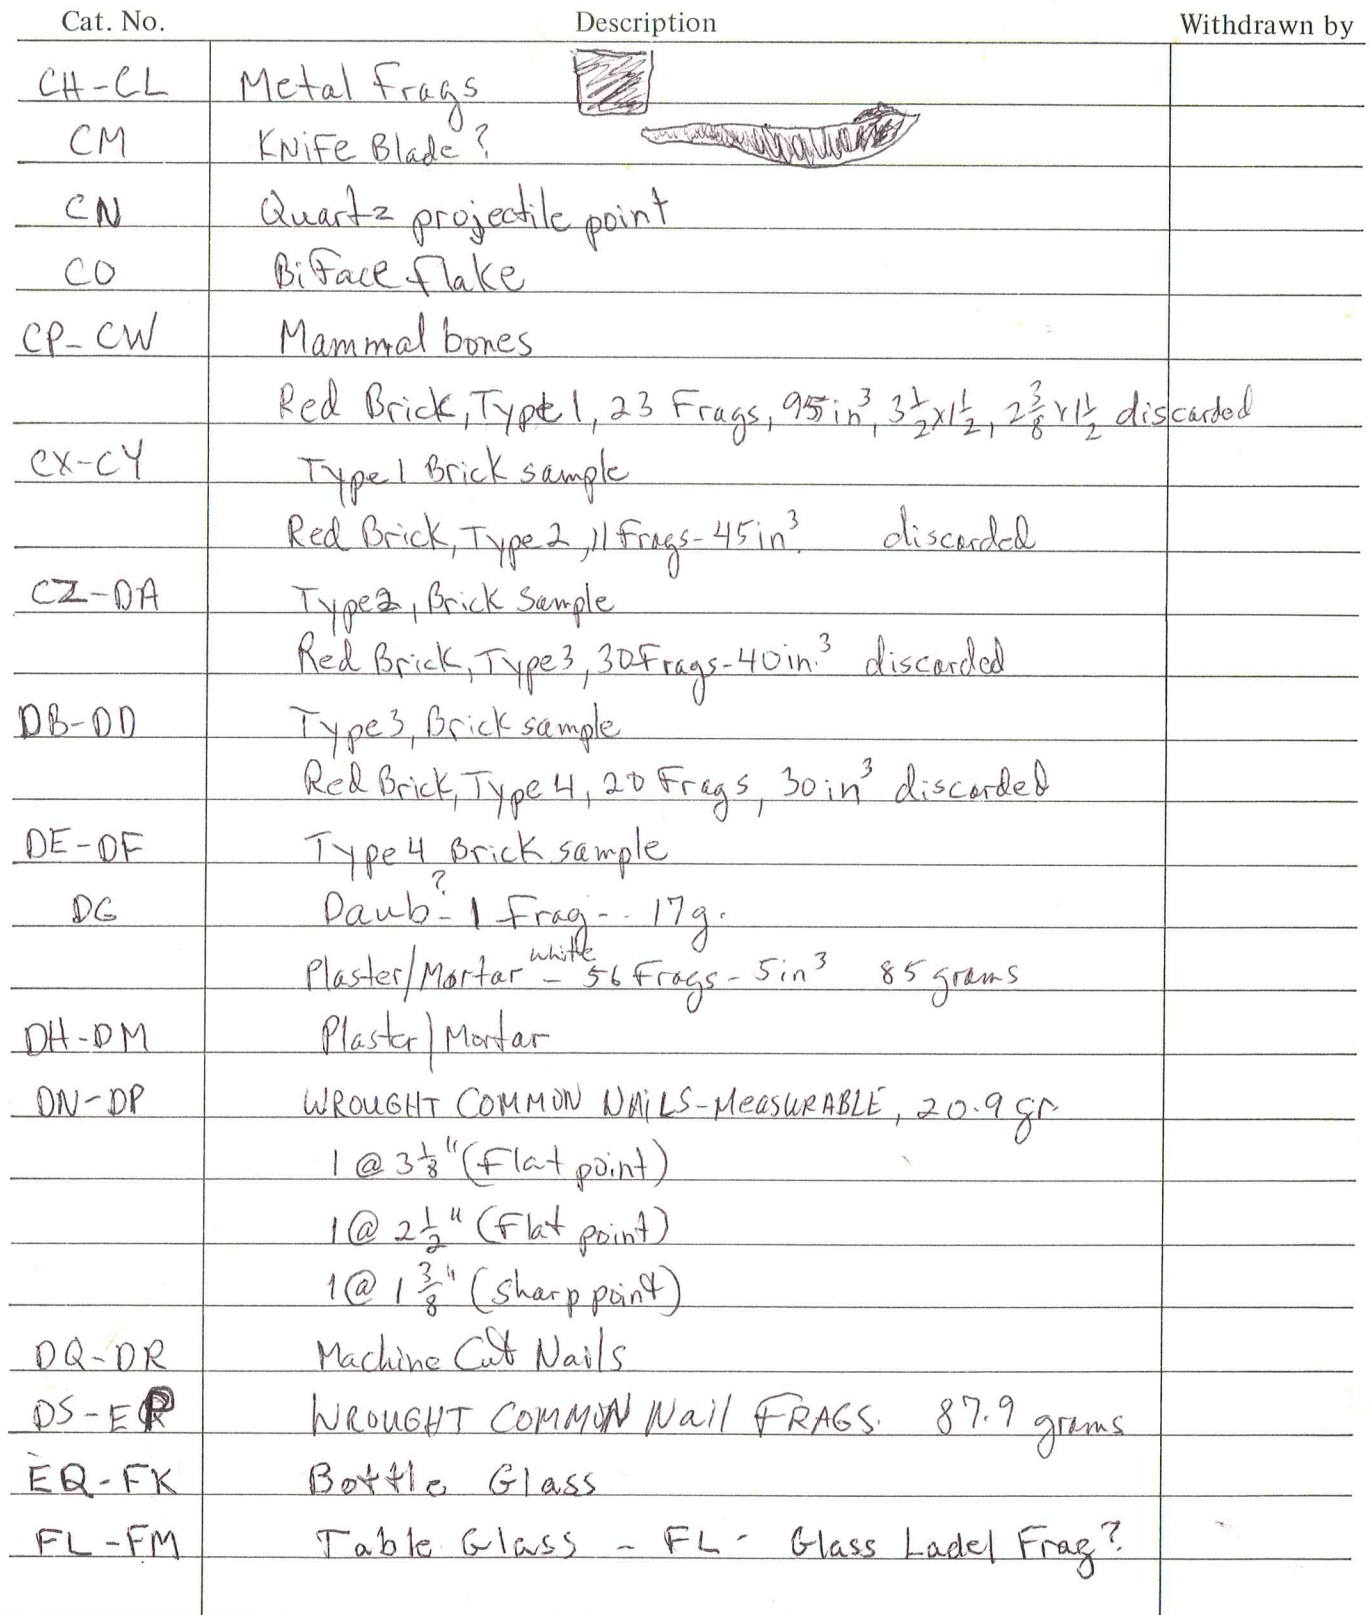 Cat. No. Description Withdrawn by
CH-CL Metal Frags
CM Knife Blade?
CN Quartz projectile point
CO Biface flake
CP-CW Mammal bones
Red Brick, Type 1, 23 Frags, 95 in³, 3 1/2 x 1 1/2, 2 3/8 x 1 1/2 discarded
CX-CY Type 1 Brick sample
Red Brick, Type 2, 11 frags - 45 in³. discarded
CZ-DA Type 2, Brick Sample
Red Brick, Type 3, 30 Frags - 40 in.³ discarded
DB-DD Type 3, Brick sample
Red Brick, Type 4, 20 Frags, 30 in³ discarded
DE-DF Type 4 Brick sample
DG Daub? - 1 Frag - - 17 g.
Plaster/Mortar - white 56 Frags - 5 in³ 85 grams
DH-DM Plaster/Mortar
DN-DP WROUGHT COMMON NAILS - MEASURABLE, 20.9 gr
1 @ 3 1/8" (Flat point)
1 @ 2 1/2" (Flat point)
1 @ 1 3/8" (sharp point)
DQ-DR Machine Cut Nails
DS-EP WROUGHT COMMON Nail FRAGS. 87.9 grams
EQ-FK Bottle Glass
FL-FM Table Glass - FL - Glass Ladel Frag?